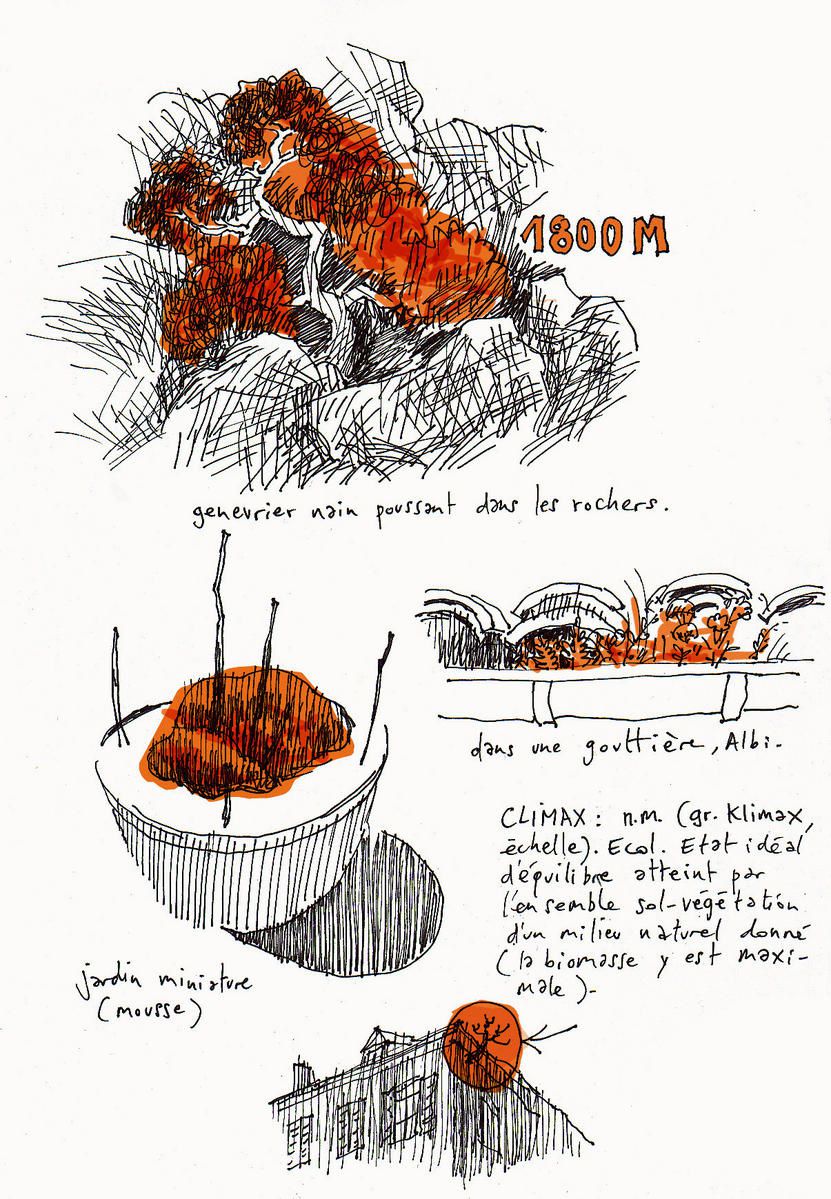 1800 M
genevrier nain poussant dans les rochers.
dans une gouttière, Albi.
CLIMAX : n.m. (gr. Klimax,
échelle). Ecol. Etat idéal
d'équilibre atteint par
l'ensemble sol-végétation
d'un milieu naturel donné
(la biomasse y est maxi-
male).
jardin miniature
(mousse)